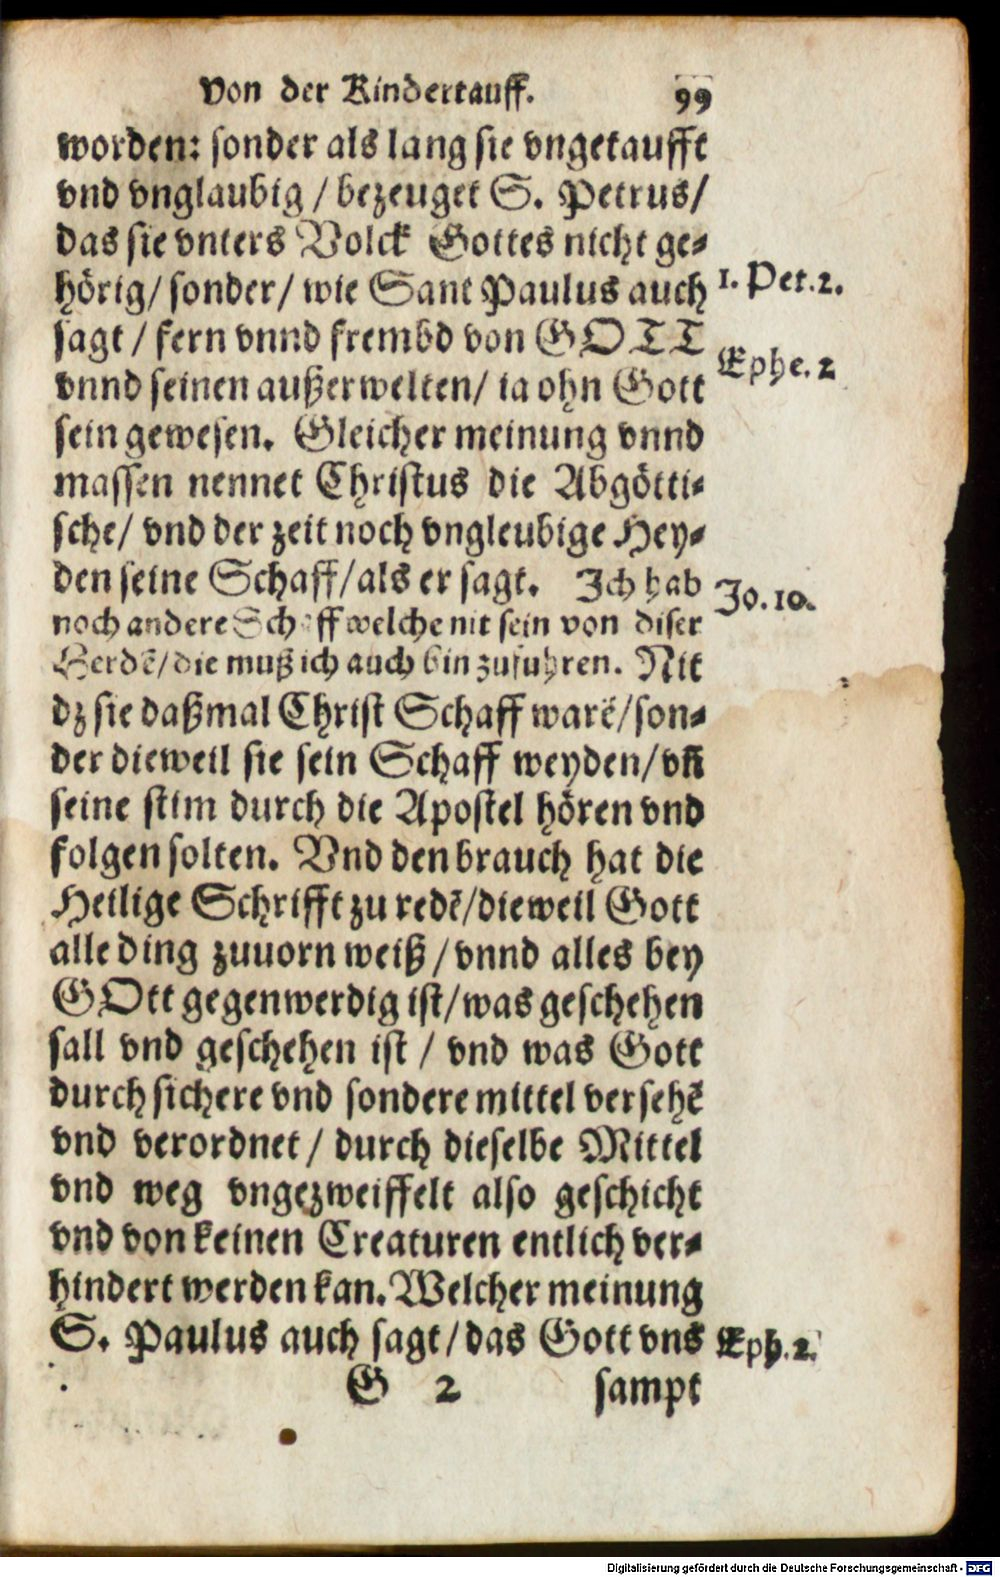 Von der Kindertauff. 99
worden: sonder als lang sie vngetaufft
vnd vnglaubig / bezeuget S. Petrus/
das sie vnters Volck Gottes nicht ge-
hörig/ sonder/ wie Sant Paulus auch 1. Pet. 2.
sagt / fern vnnd frembd von GOTT
vnnd seinen außerwelten/ ia ohn Gott Ephe. 2
sein gewesen. Gleicher meinung vnnd
massen nennet Christus die Abgötti-
sche/ vnd der zeit noch vngleubige Hey-
den seine Schaff/als er sagt. Ich hab Jo. 10.
noch andere Schaff welche nit sein von diser
Herdē/die muß ich auch hinzufuhren. Nit
dz sie daßmal Christ Schaff warē/son-
der dieweil sie sein Schaff weyden/vñ
seine stim durch die Apostel hören vnd
folgen solten. Vnd den brauch hat die
Heilige Schrifft zu redē/dieweil Gott
alle ding zuuorn weiß / vnnd alles bey
GOtt gegenwerdig ist/was geschehen
sall vnd geschehen ist / vnd was Gott
durch sichere vnd sondere mittel versehē
vnd verordnet / durch dieselbe Mittel
vnd weg vngezweiffelt also geschicht
vnd von keinen Creaturen entlich ver-
hindert werden kan. Welcher meinung
S. Paulus auch sagt/das Gott vns Eph. 2.
G 2 sampt
Digitalisierung gefördert durch die Deutsche Forschungsgemeinschaft - DFG